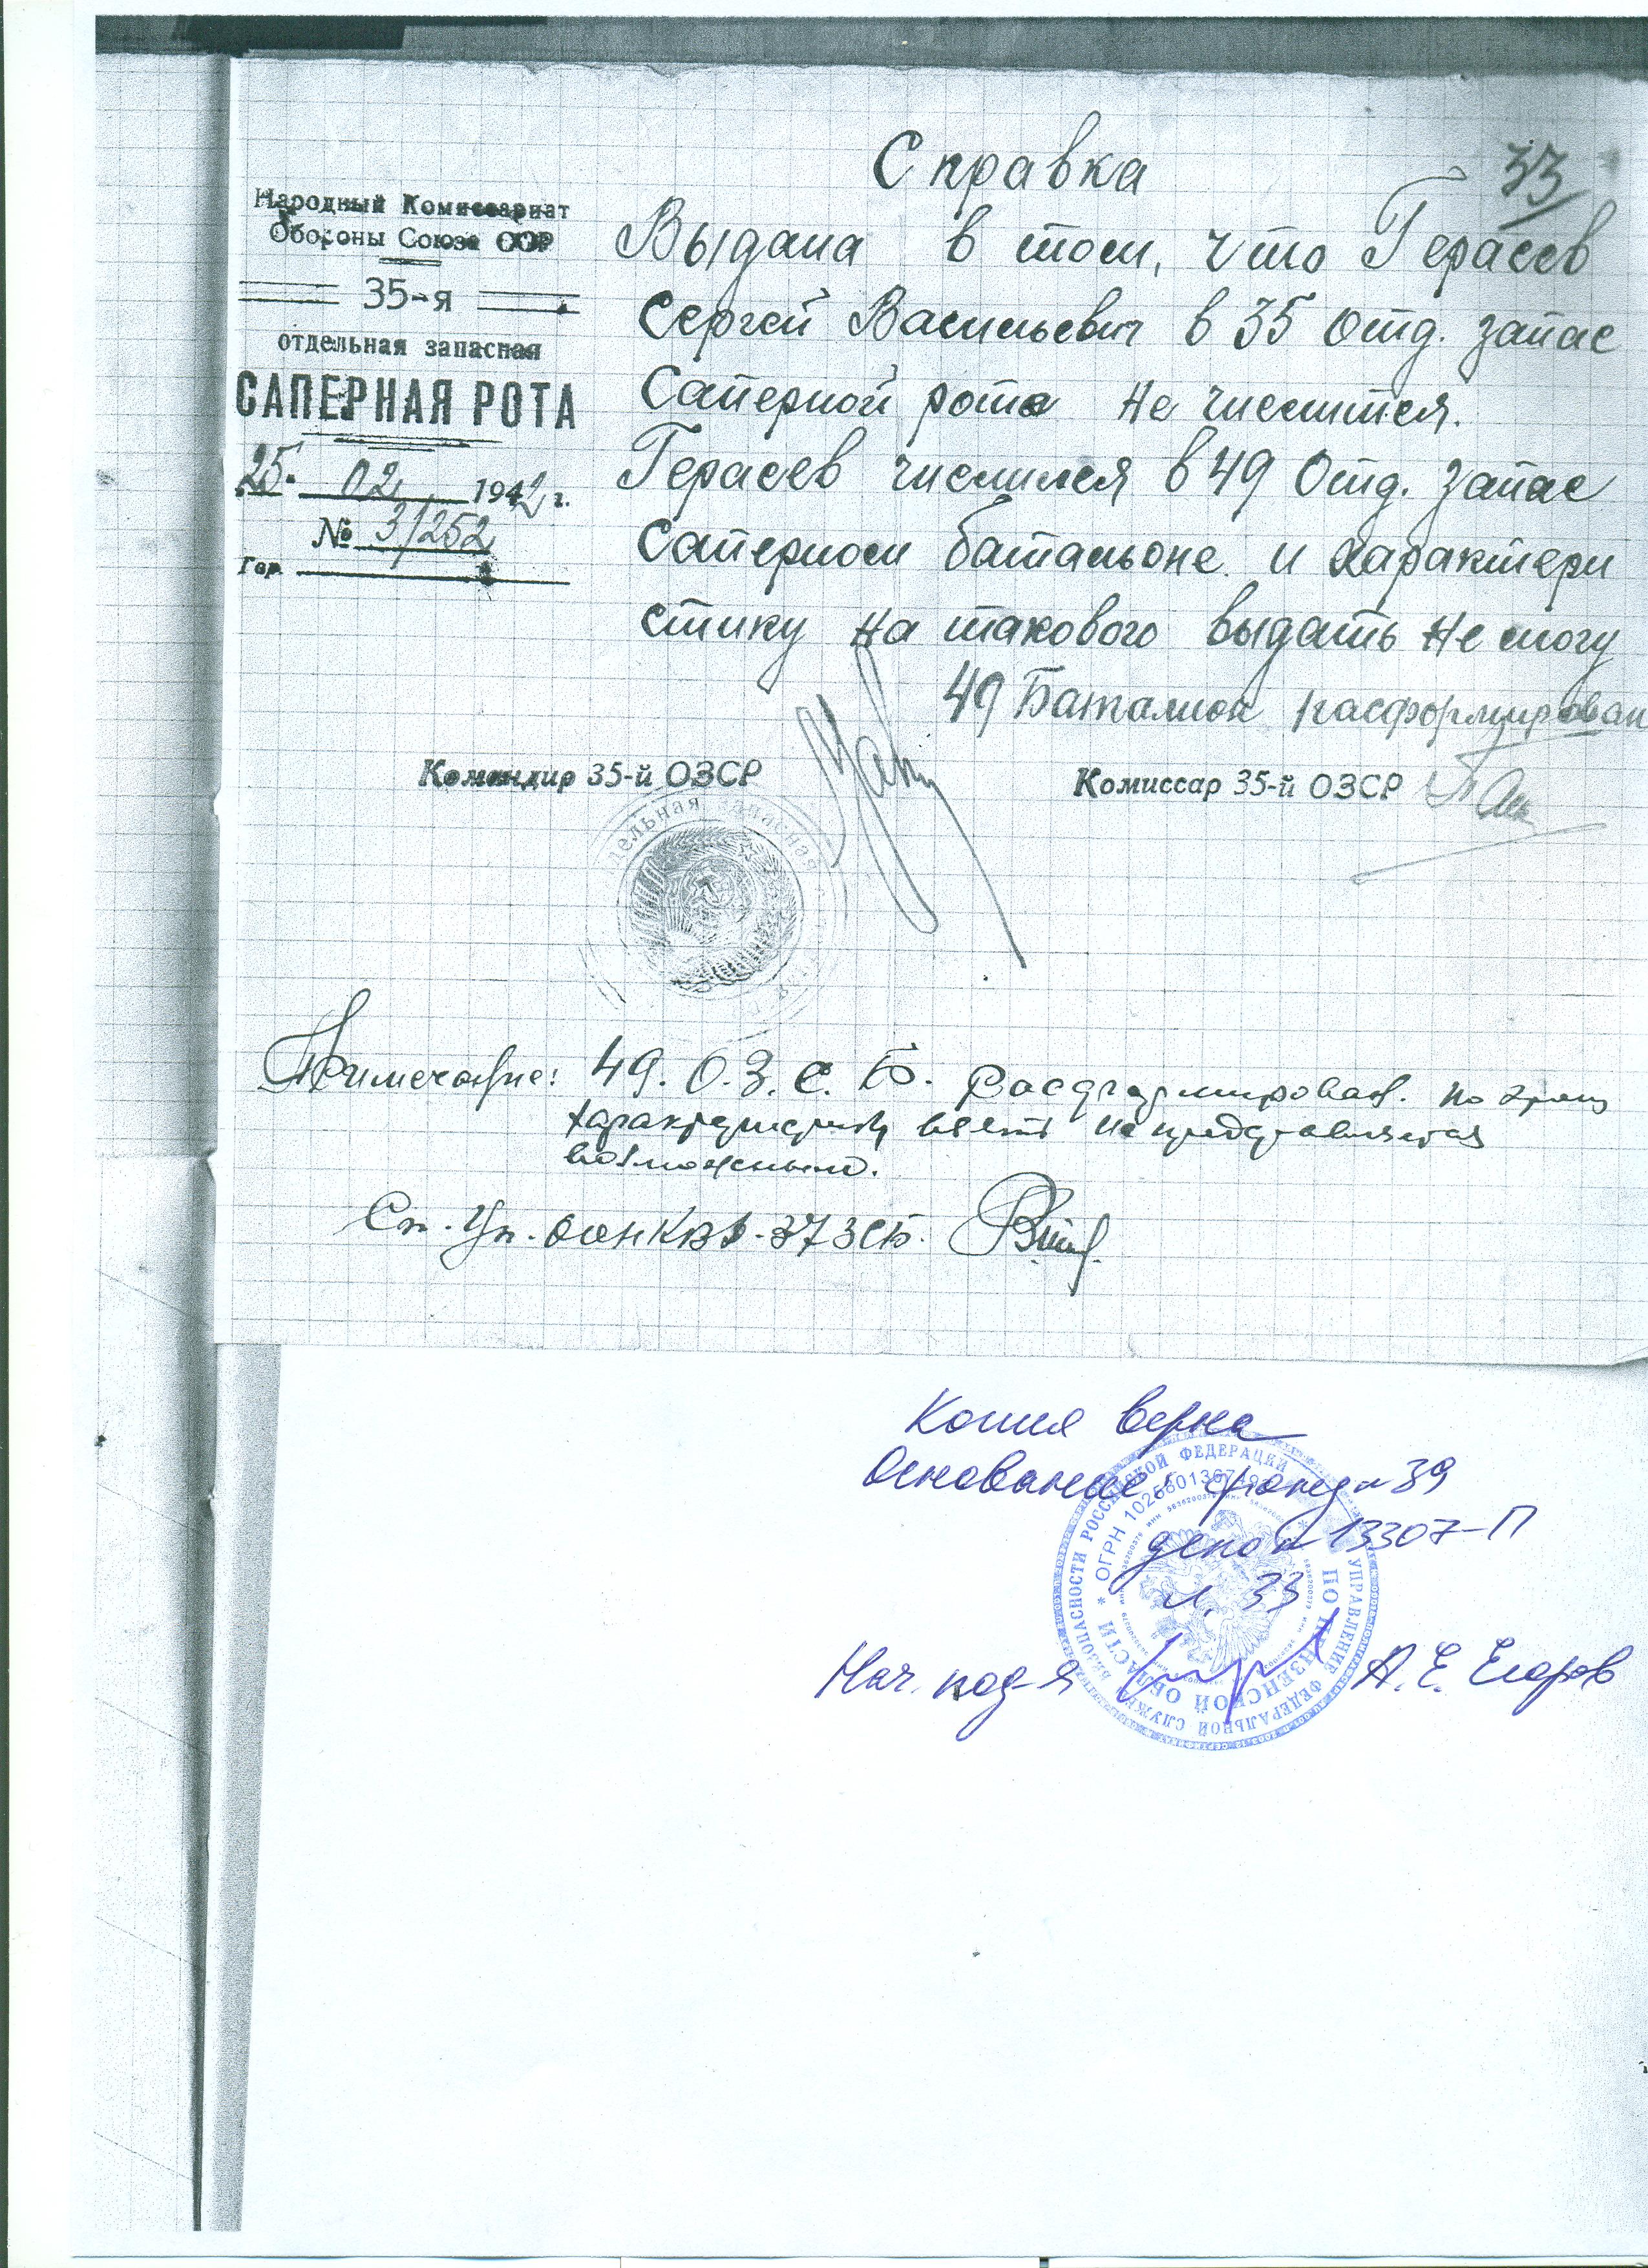 Справка
33
Народный Комиссариат
Обороны Союза ССР
35-я
отдельная запасная
САПЕРНАЯ РОТА
25. 02 1942 г.
№ 3/252
Гор.
Выдана в том, что Герасев
Сергей Васильевич в 35 Отд. запас
Саперной рота не числится.
Герасев числился в 49 Отд. запас
Саперном батальоне и характери
стику на такового выдать не могу
49 Баталион расформирован
Командир 35-й ОЗСР
Комиссар 35-й ОЗСР
Примечание: 49. О.З.С.Б. Расформирован. по этому
характеристику взять не представляется
возможным.
Копия верна
Основание: фонд № 39
дело № 13307-П
л. 33
Нач. под-я А. Е. Егоров
УПРАВЛЕНИЕ ФЕДЕРАЛЬНОЙ СЛУЖБЫ БЕЗОПАСНОСТИ РОССИЙСКОЙ ФЕДЕРАЦИИ
ПО ПЕНЗЕНСКОЙ ОБЛАСТИ